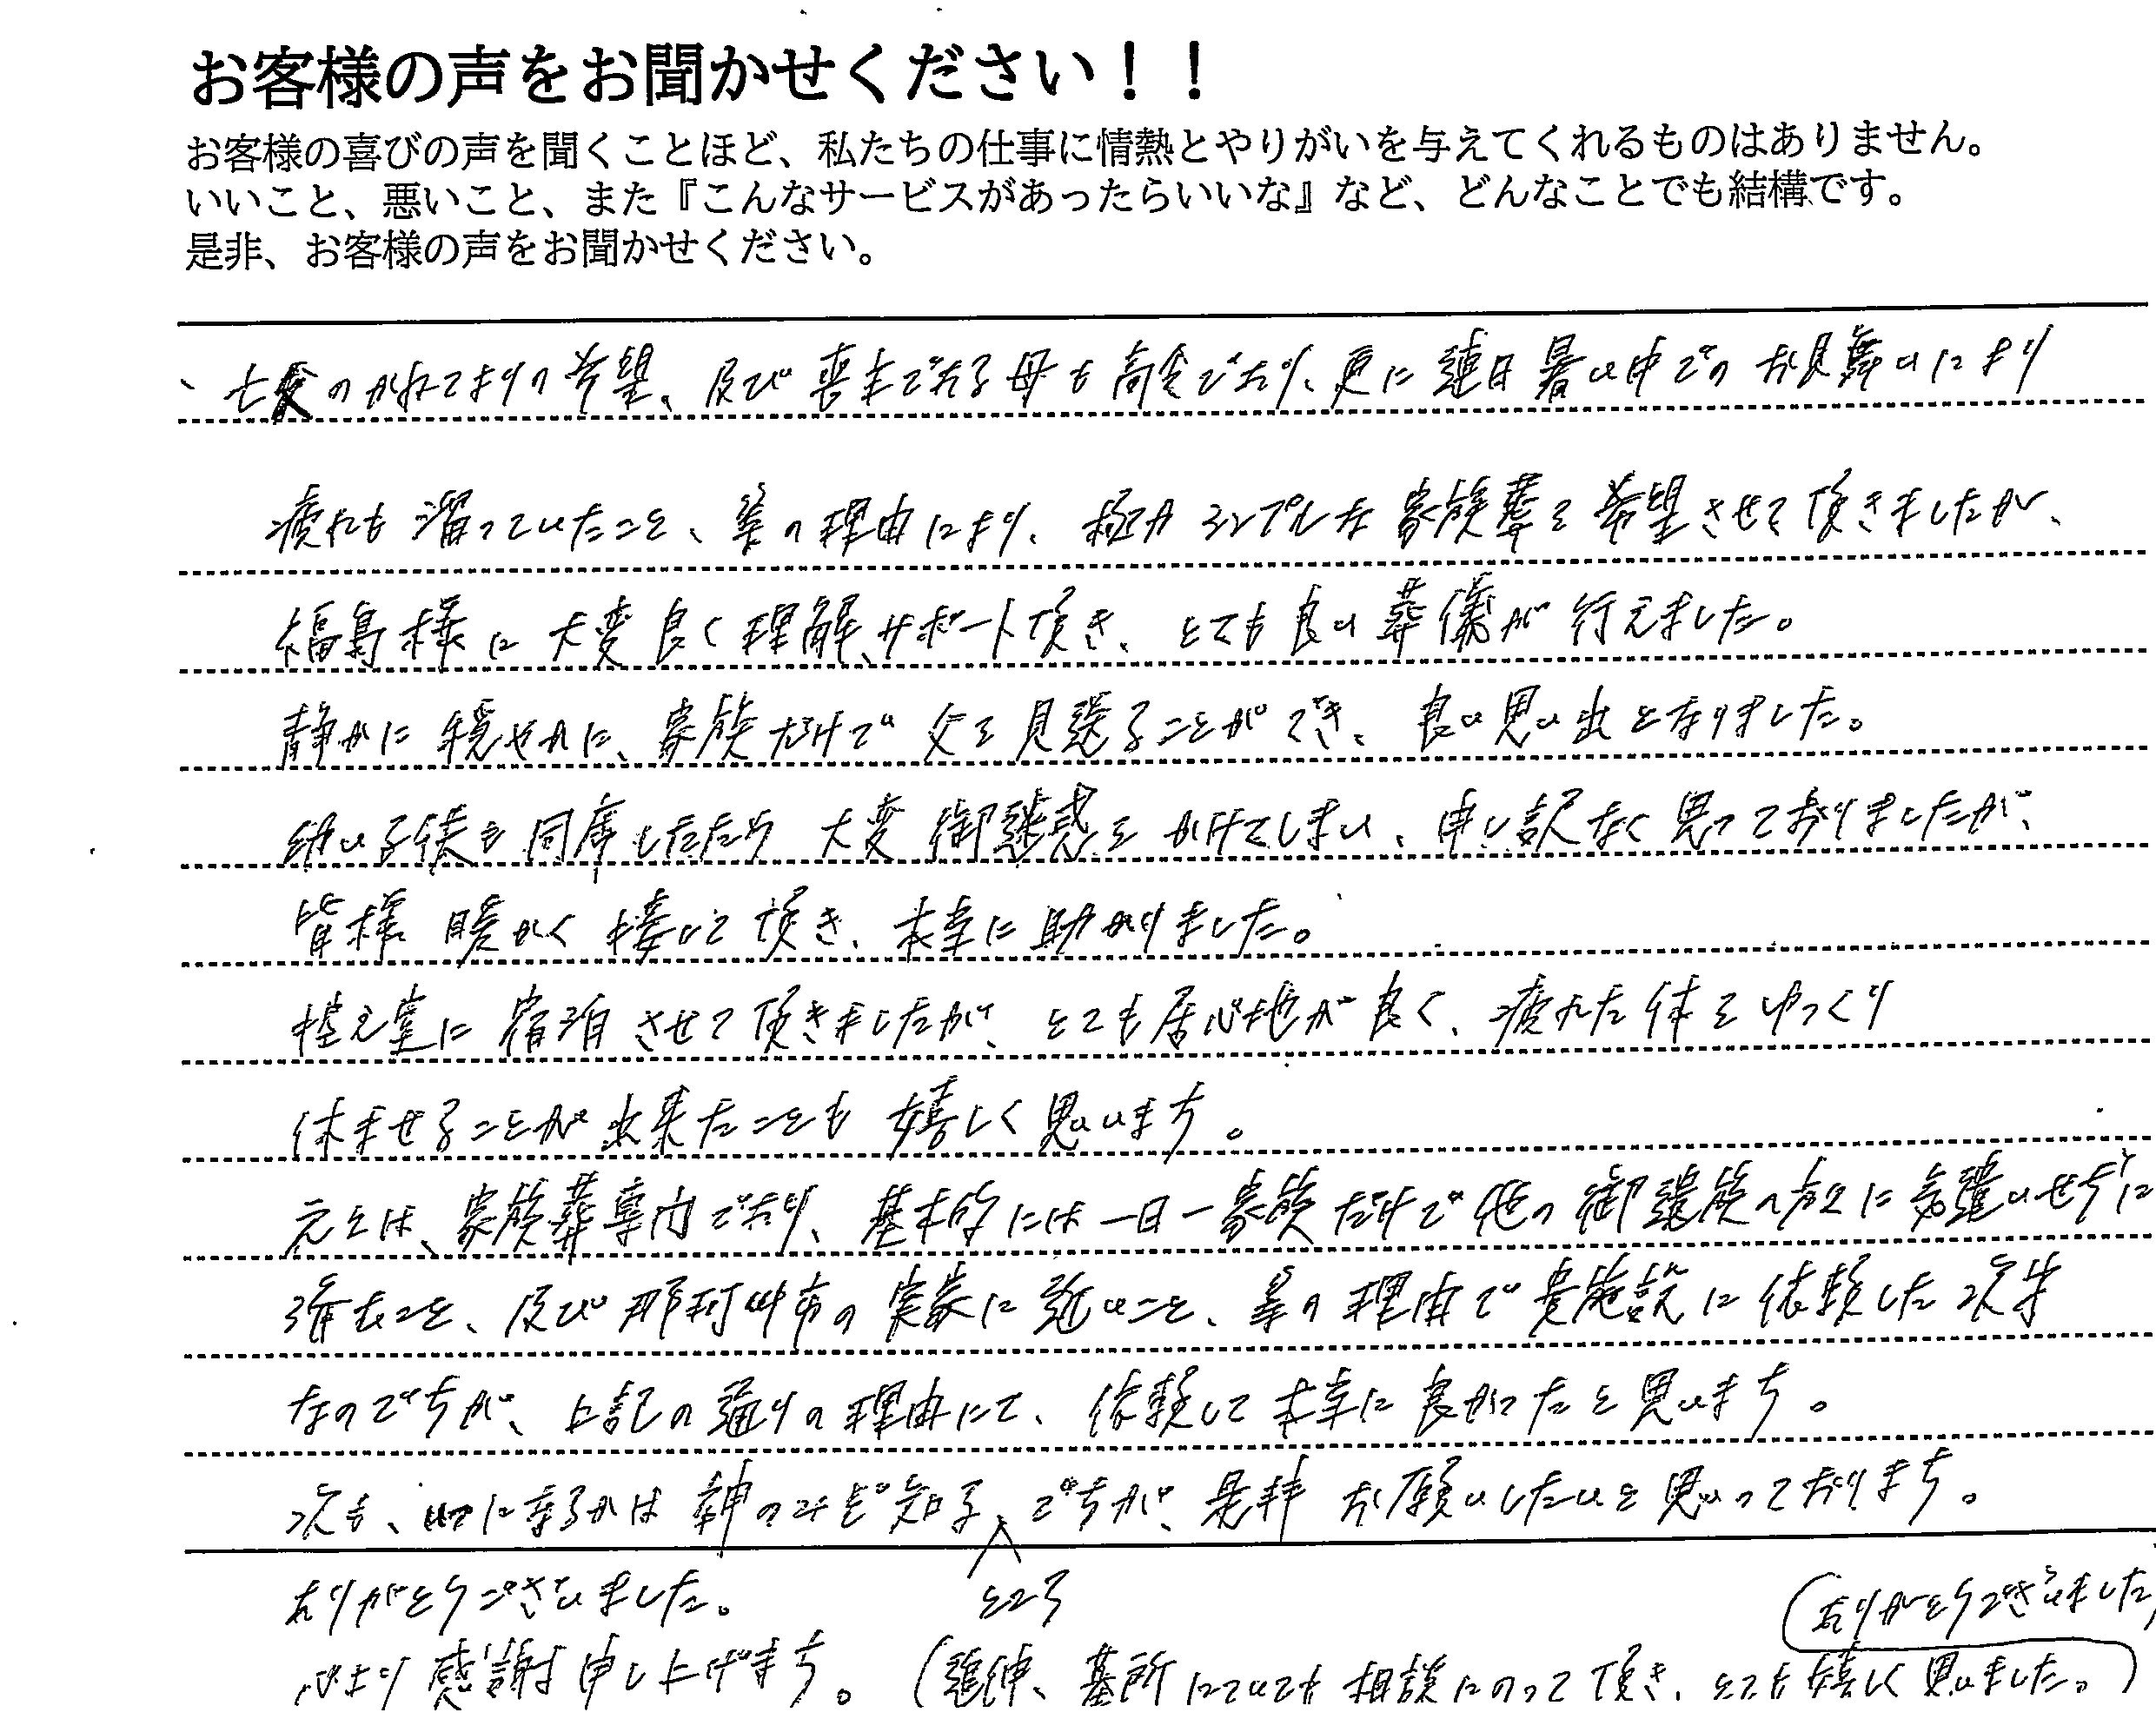 お客様の声をお聞かせください！！
お客様の喜びの声を聞くことほど、私たちの仕事に情熱とやりがいを与えてくれるものはありません。
いいこと、悪いこと、また『こんなサービスがあったらいいな』など、どんなことでも結構です。
是非、お客様の声をお聞かせください。
、亡父のかねてよりの希望、及び喪主である母も高令であり、更に連日暑い中でのお見舞いにより
疲れも溜っていたこと、等の理由により、極力シンプルな家族葬を希望させて頂きましたが、
福島様に大変良く理解、サポート頂き、とても良い葬儀が行えました。
静かに穏やかに、家族だけで父を見送ることができ、良い思い出となりました。
幼い子供も同席したため大変御迷惑をかけてしまい、申し訳なく思っておりましたが、
皆様暖かく接して頂き、本幸に助かりました。
控え室に宿泊させて頂きましたが、とても居心地が良く、疲れた体をゆっくり
休ませることが出来たことも嬉しく思います。
元々は、家族葬専門であり、基本的には一日一家族だけで他の御遺族へ互に気遣いせずに
済むこと、及び那珂川市の実家に近いこと、等の理由で貴施設に依頼した次第
なのですが、上記の通りの理由にて、依頼して本幸に良かったと思います。
次も、いつになるかは神のみぞ知るところですが、是非お願いしたいと思っております。
ありがとうございました。
心より感謝申し上げます。（追伸、墓所についても相談にのって頂き、とても嬉しく思いました。）
ありがとうございました